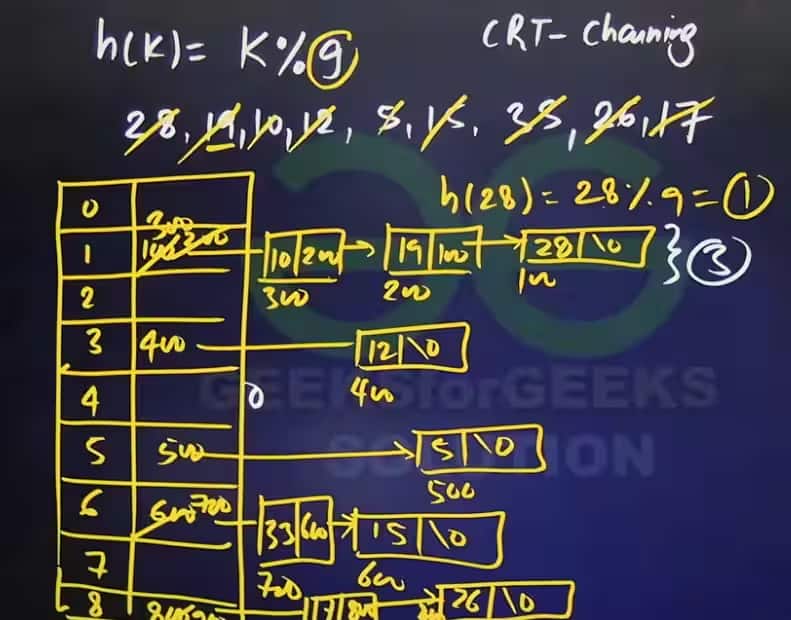 h(K) = K % 9
CRT - Chaining
28, 19, 10, 12, 5, 15, 33, 26, 17
h(28) = 28 % 9 = 1
0
1 100 200 300 10 200 19 100 28 \0 3
300 200 100
2
3 400 12 \0
400
4 0
GEEKSforGEEKS
5 500 5 \0
SOLUTION
500
6 600 700 33 600 15 \0
700 600
7
8 17 800 26 \0